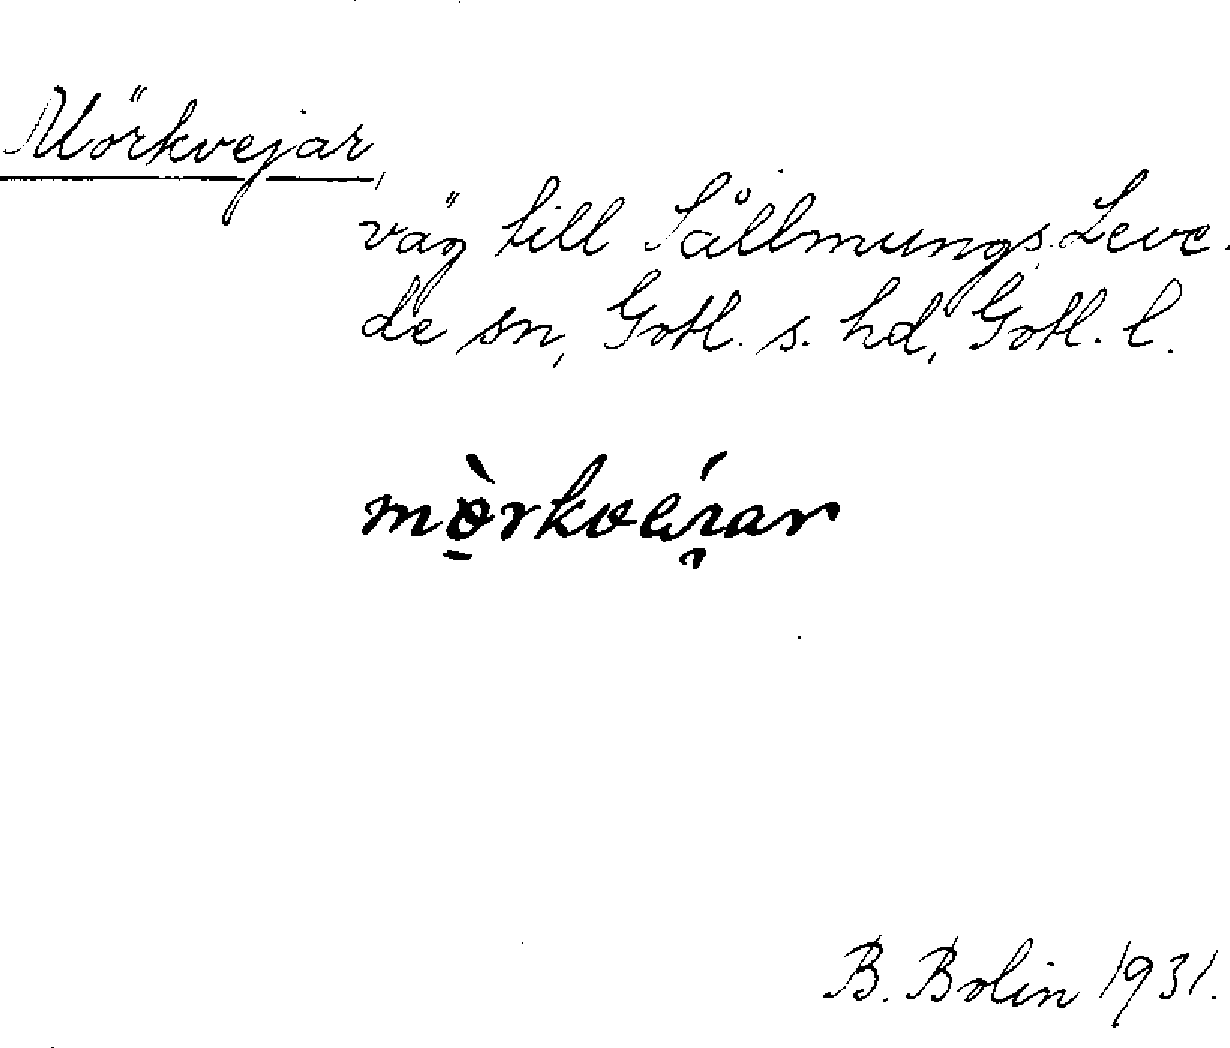 Mörkvejar,
väg till Sållmungs, Leve-
de sn, Gotl. s. hd, Gotl. l.
B. Bolin 1931.